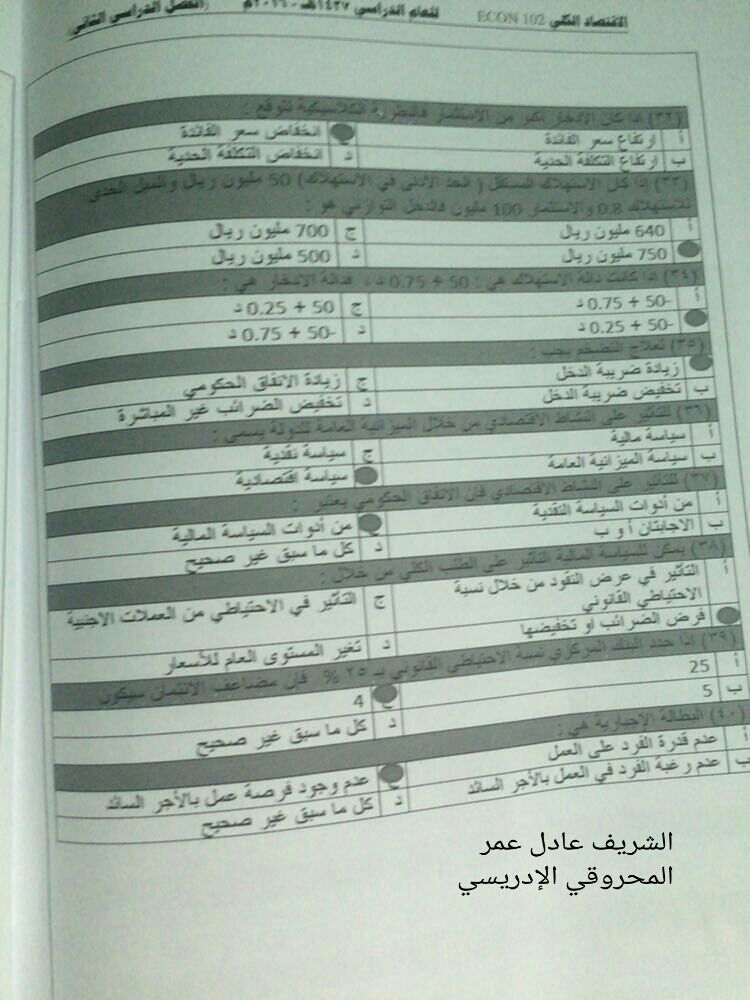 الاقتصاد الكلي ECON 102 للعام الدراسي ١٤٣٧هـ - ٢٠١٦م (الفصل الدراسي الثاني)
(٣٢) إذا كان الادخار أكبر من الاستثمار فالنظرية الكلاسيكية تتوقع :
أ ارتفاع سعر الفائدة انخفاض سعر الفائدة
ب ارتفاع التكلفة الحدية د انخفاض التكلفة الحدية
(٣٣) إذا كان الاستهلاك المستقل (الحد الأدنى في الاستهلاك) 50 مليون ريال والميل الحدي
للاستهلاك 0.8 والاستثمار 100 مليون فالدخل التوازني هو :
أ 640 مليون ريال ج 700 مليون ريال
750 مليون ريال د 500 مليون ريال
(٣٤) اذا كانت دالة الاستهلاك هي : 50 + 0.75 د ، فدالة الادخار هي :
أ -50 + 0.75 د ج 50 + 0.25 د
-50 + 0.25 د د -50 + 0.75 د
(٣٥) لعلاج التضخم يجب :
زيادة ضريبة الدخل ج زيادة الانفاق الحكومي
ب تخفيض ضريبة الدخل د تخفيض الضرائب غير المباشرة
(٣٦) للتأثير على النشاط الاقتصادي من خلال الميزانية العامة للدولة يسمى :
أ سياسة مالية ج سياسة نقدية
ب سياسة الميزانية العامة سياسة اقتصادية
(٣٧) للتأثير على النشاط الاقتصادي فإن الانفاق الحكومي يعتبر :
أ من أدوات السياسة النقدية من أدوات السياسة المالية
ب الاجابتان أ و ب د كل ما سبق غير صحيح
(٣٨) يمكن للسياسة المالية التأثير على الطلب الكلي من خلال :
أ التأثير في عرض النقود من خلال نسبة ج التأثير في الاحتياطي من العملات الاجنبية
الاحتياطي القانوني
فرض الضرائب او تخفيضها د تغير المستوى العام للأسعار
(٣٩) اذا حدد البنك المركزي نسبة الاحتياطي القانوني بـ ٢٥ % فإن مضاعف الائتمان سيكون
أ 25 ج 4
ب 5 د كل ما سبق غير صحيح
(٤٠) البطالة الإجبارية هي :
أ عدم قدرة الفرد على العمل عدم وجود فرصة عمل بالأجر السائد
ب عدم رغبة الفرد في العمل بالأجر السائد د كل ما سبق غير صحيح
الشريف عادل عمر
المحروقي الإدريسي